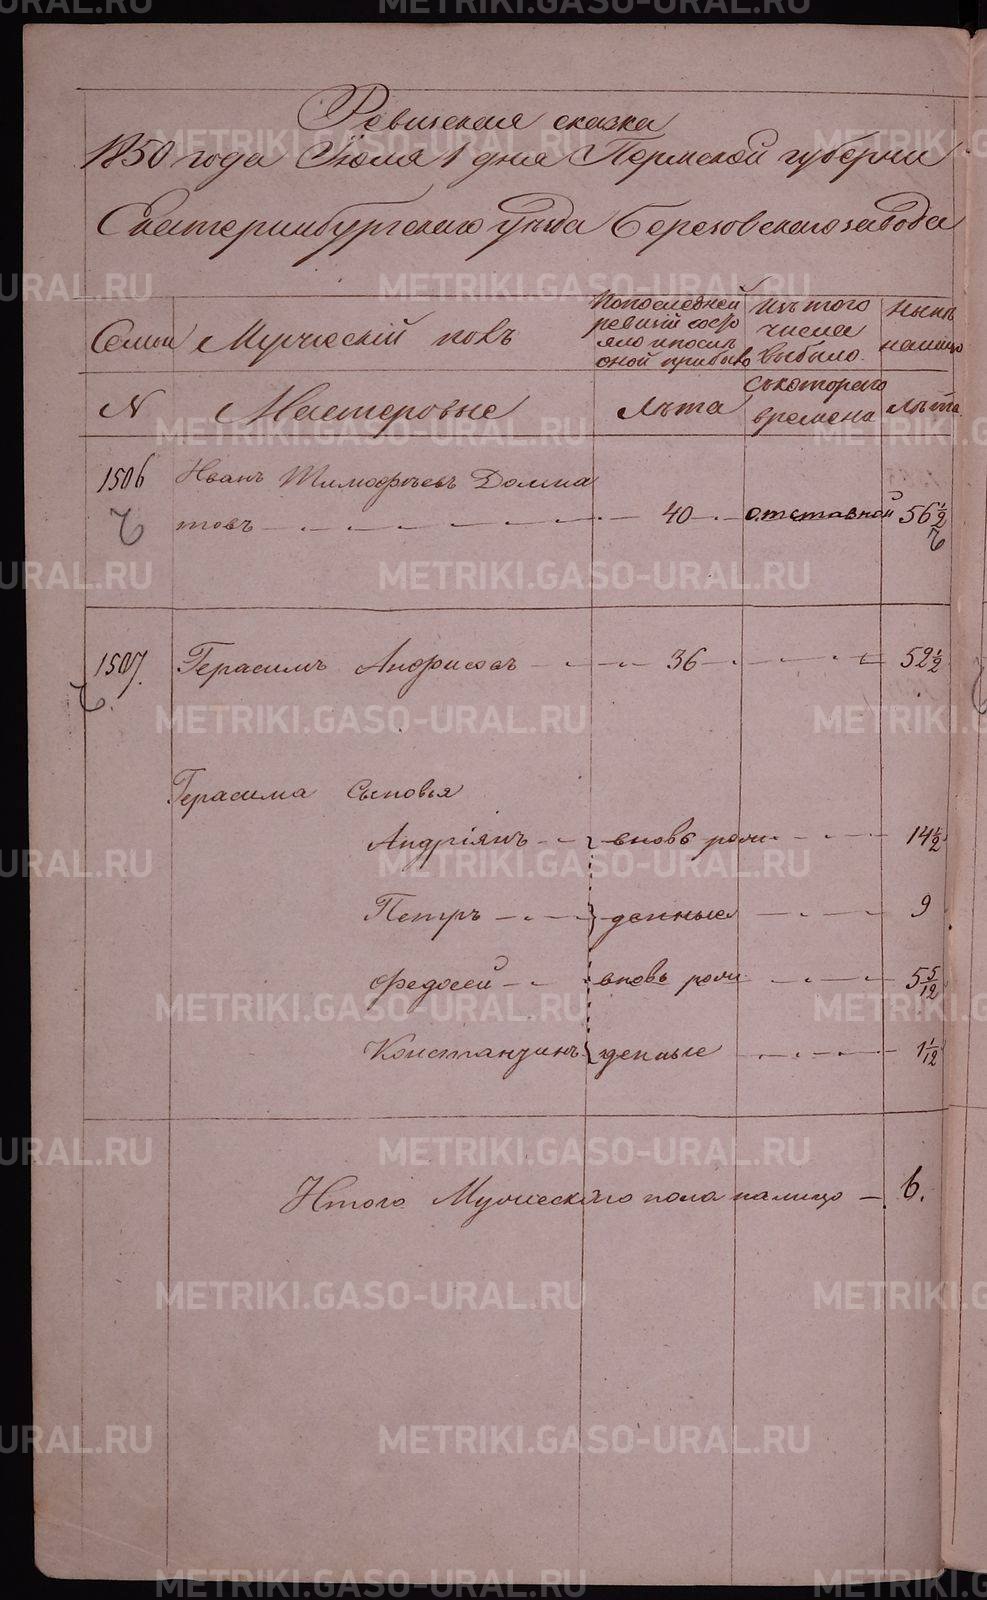 Ревизская сказка
1850 года Іюля 1 дня Пермской губерніи
Екатеринбургскаго уѣзда Березовскаго завода
Семьи
Мужескій полъ
По последней
ревизіи состо
яло и после
оной прибыло
Изъ того
числа
выбыло
Нынѣ
налицо
N
Мастеровые
Лѣта
Съ котораго
времени
Лѣта
1506
Иванъ Тимофѣевъ Долма
товъ
40
отставной
56 1/2
1507.
Герасимъ Андрисовъ
36
52 1/2
Герасима Сыновья
Андріянъ
вновь рож
14 1/2
Петръ
денные
9
Федосей
вновь рож
5 5/12
Константинъ
денные
1 1/12
Итого Мужескаго пола налицо
6.
METRIKI.GASO-URAL.RU